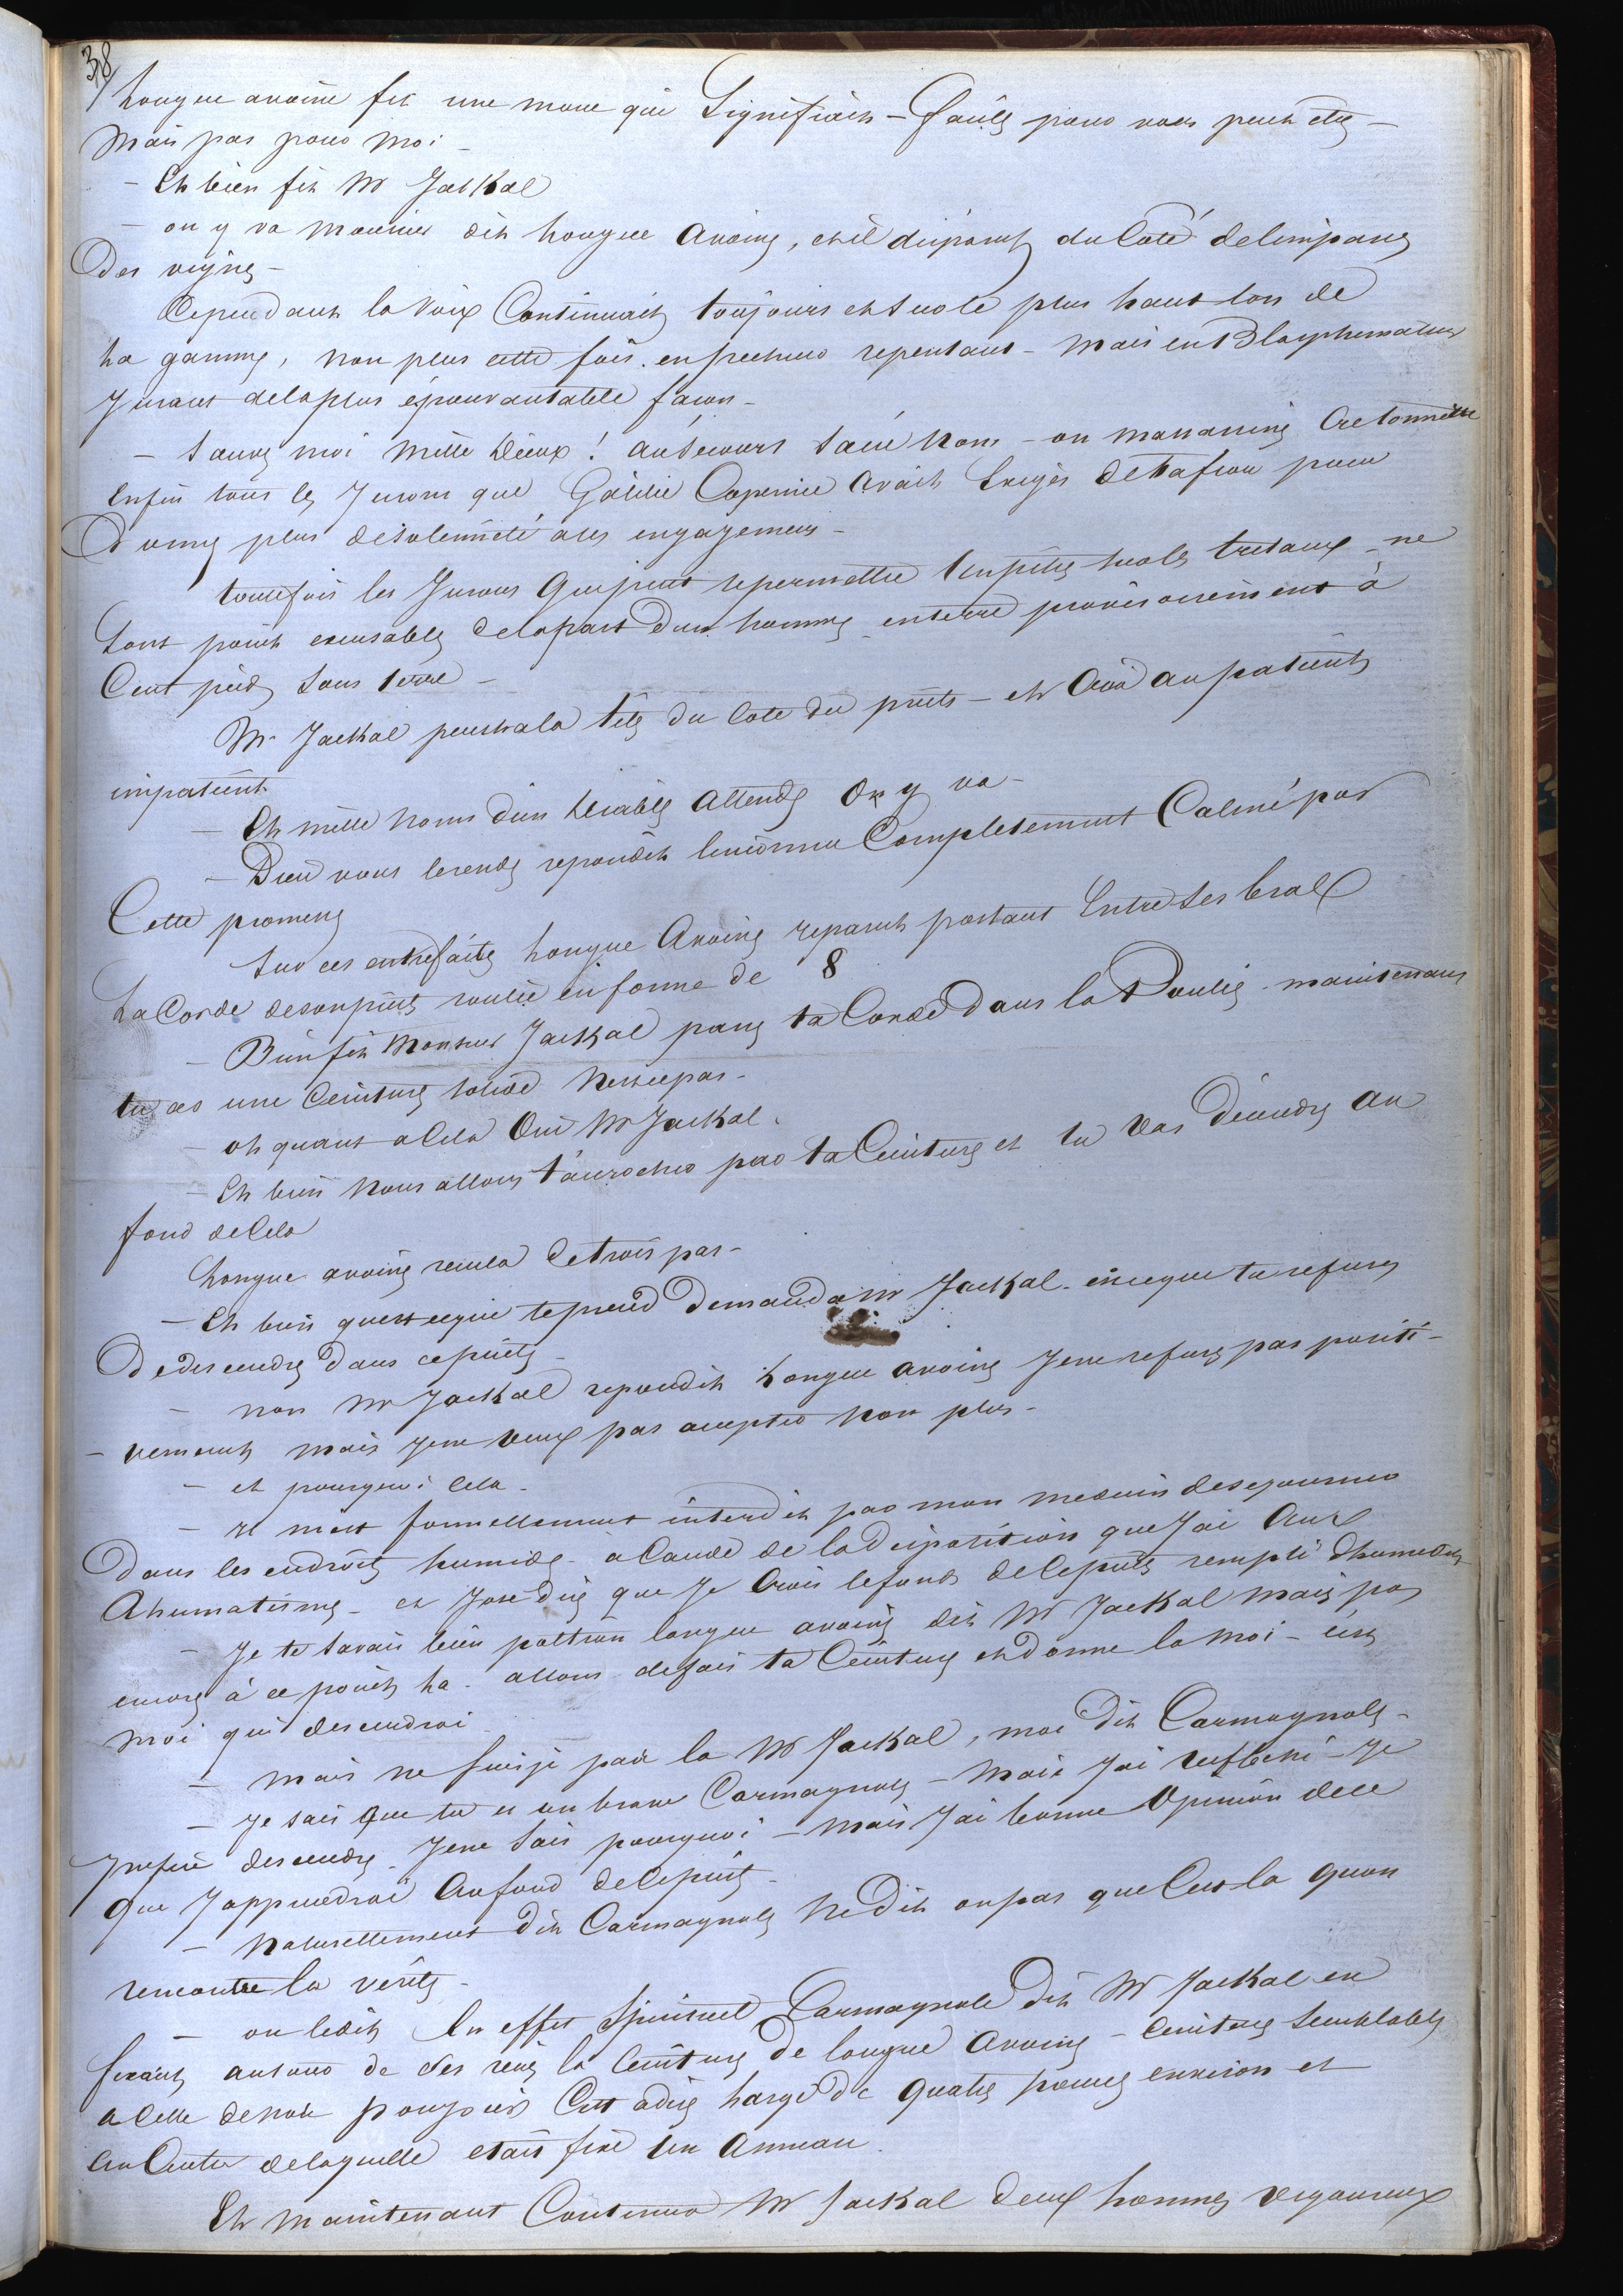 38
Longue avoine fit une moue qui Signifiait – Facile pour vous peut etre –
Mais pas pour moi –
– Eh bien fit Mr Jackal
– on y va monsieur dit longue avoine, et il disparut du Coté de limpasse
Des vignes –
Cependant la Voix Continuait toujours et sur le plus haut ton de
la gamme, non plus cette fois en pecheur repentant – Mais en Blasphemateur
Jurant de la plus épouvantable facon –
– Sauvez moi Mille Dieux ! au Secours Sacré nom – on massassine Cre tonnerre
Enfin tous les Jurons que Gibelie Copernic avait Exigés de Fafiou pour
Donner plus de Solennité a ses engagemens –
toutefois les Jurons que peut se permettre sur les treteaux – ne
Sont point excusables de la part dun homme enterré provisoirement à
Cent pieds Sous terre –
Mr Jackal pencha la tête du Coté du puits – et Cria au patient
impatient
– Eh mille noms d'un Diable attends On y va –
– Dieu vous le rende repondit linconnu Completement Calmé par
Cette promesse
Sur ces entrefaites longue Avoine reparut portant Entre ses bras
La Corde de son puits roulée en forme de 8
– Bien fit Monsieur Jackal passe ta Corde dans la Poulie – maintenant
tu as une Ceinture solide nest ce pas –
– oh quant a Cela Oui Mr Jackal.
– Eh bien nous allons t'accrocher par ta Ceinture et tu Vas descendre au
fond de Cela
Longue avoine recula de trois pas –
– Eh bien quest ce qui te prend Demanda Mr Jackal – est ce que tu refuses
De descendre Dans ce puits –
– non Mr Jackal repondit Longue avoine Je ne refuse pas positi –
– vement mais je ne veux pas accepter non plus –
– et pourquoi Cela –
– il mest formellement interdit par mon medecin de sejourner
Dans les endroits humides – a Cause de la disposition que Jai Aux
Rhumatisme – et J'ose dire que Je Crois le fond de Ce puits rempli dhumidité –
– Je te Savais bien poltron longue avoine dit Mr Jackal mais pas
encore à ce point la – allons defais ta Ceinture et donne la moi – cest
moi qui descendrai
– Mais ne Suis je pas la Mr Jackal, moi dit Carmagnole –
– Je sais que tu es un brave Carmagnole – Mais J'ai reflechi – Je
prefere descendre – Je ne Sais pourquoi – mais J'ai bonne Opinion de ce
Que J'apprendrai Au fond de Ce puits –
– Naturellement dit Carmagnole ne Dit on pas que Cest la quon
rencontre la vérité –
– on le dit En effet Spirituel Carmagnole dit Mr Jackal en
fixant autour de Ses reins la Ceinture de longue Avoine – Ceinture Semblable
a Celle de nos pompiers Cest a dire large de quatre pouces environ et
au Centre de laquelle etait fixé un Anneau.
Et Maintenant Continua Mr Jackal deux hommes vigoureux